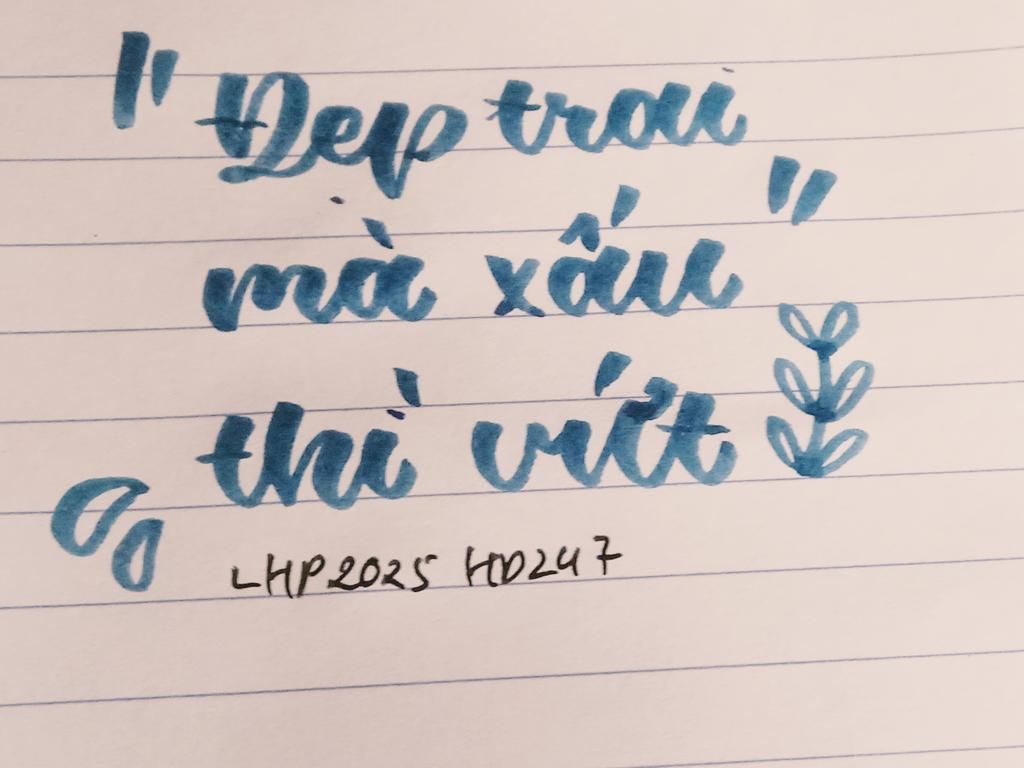 "Đẹp trai
mà xấu"
thì viết
LHP2025 HD247